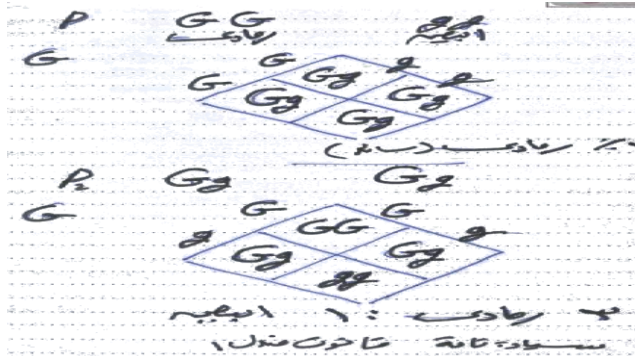 P GG gg
رمادي ابيض
G
G G g g
Gg
Gg Gg
Gg
٪ رمادي
P₂ Gg Gg
G G G
g GG g
Gg Gg
gg
٣ رمادي : ١ ابيض
سيادة تامة قانون مندل ١